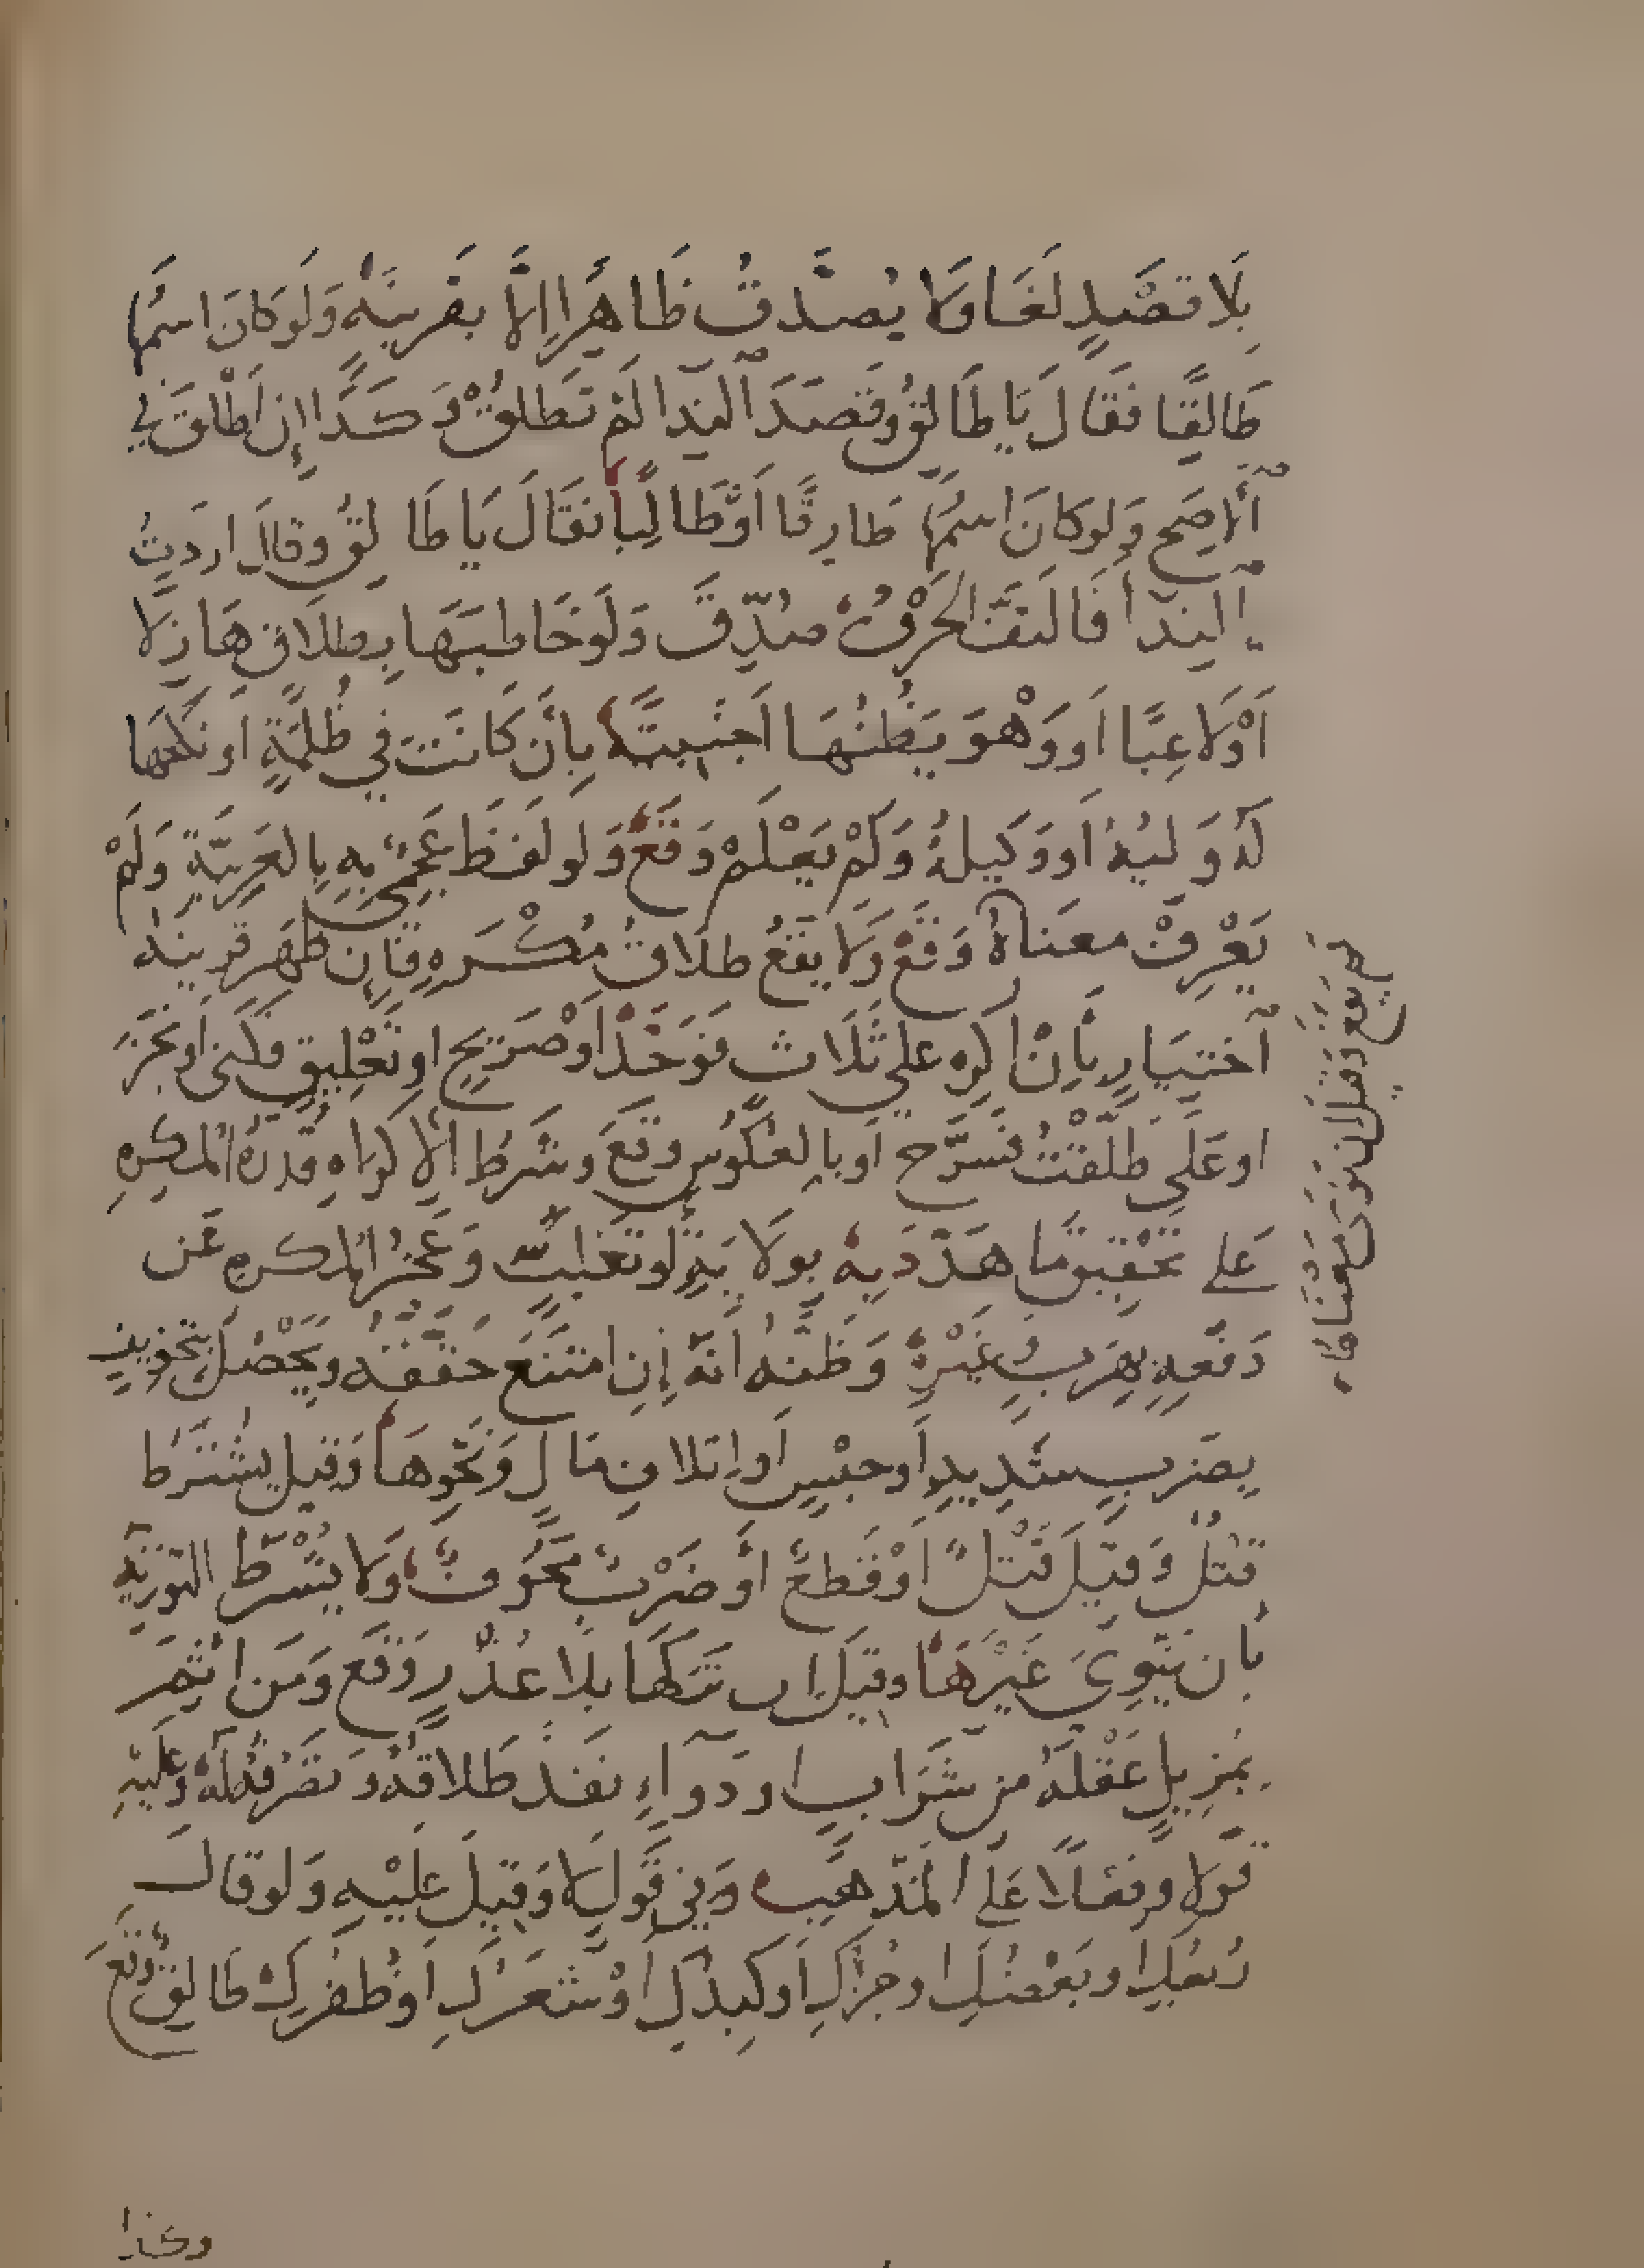 بِلَا قَصْدٍ لَغَا وَلَا يُصَدَّقُ ظَاهِرًا اِلَّا بِقَرِينَةٍ وَلَوْ كَانَ اسْمُهَا
طَالِقًا فَقَالَ يَا طَالِقُ وَقَصَدَ النِّدَا لَمْ تَطْلُقْ وَكَذَا إِنْ اَطْلَقَ فِي
اْلاَصَح وَلَوْ كَانَ اسْمُهَا طَارِقًا اَوْ طَالِبًا فَقَالَ يَا طَالِقُ وَقَالَ اَرَدْتُ
النِّدَآ فَالْتَفَّ الْحَرْفُ صُدِّقَ وَلَوْ خَاطَبَهَا بِطَلَاقٍ هَازِلًا
اَوْ لَاعِبًا اَوْ وَهْوَ يَظُنُّهَا اَجْنَبِيَّةً بِأَنْ كَانَتْ فِي ظُلْمَةٍ اَوْ نَكَحَهَا
لَهُ وَلِيُّهُ اَوْ وَكِيلُهُ وَلَمْ يَعْلَمْ وَقَعَ وَلَوْ لَفَظَ عَجَمِيٌّ بِهِ بِالْعَرَبِيَّةِ وَلَمْ
يَعْرِفْ مَعْنَاهُ لَمْ يَقَعْ وَقِيلَ اِنْ نَوَى مَعْنَاهَا وَقَعَ وَلَا يَقَعُ طَلَاقُ مُكْرَهٍ فَإِنْ ظَهَرَ قَرِينَةُ
اَخْتِيَارٍ بِاَنْ اُكْرِهَ عَلَى ثَلَاثٍ فَوَحَّدَ اَوْ صَرِيحٍ اَوْ تَعْلِيقٍ فَكَنَى اَوْ نَجَّزَ
اَوْ عَلَى طَلَّقْتُ فَسَرَّحَ اَوْ بِالْعُكُوسِ وَقَعَ وَشَرْطُ الْاِكْرَاهِ قُدْرَةُ الْمُكْرِهِ
عَلَى تَحْقِيقِ مَا هَدَّدَ بِهِ بِوِلَايَةٍ اَوْ تَغَلُّبٍ وَعَجْزُ الْمُكْرَهِ عَنْ
دَفْعِهِ بِهَرَبٍ وَغَيْرِهِ وَظَنُّهُ اَنَّهُ إِنِ امْتَنَعَ حَقَّقَهُ وَيَحْصُلُ بِتَخْوِيفٍ
بِضَرْبٍ شَدِيدٍ اَوْ حَبْسٍ اَوْ اِتْلَافِ مَالٍ وَنَحْوِهَا وَقِيلَ يُشْتَرَطُ
قَتْلٌ وَقِيلَ قَتْلٌ اَوْ قَطْعٌ اَوْ ضَرْبٌ مُخَوِّفٌ وَلَا يُشْرَطُ التَّوْرِيَةُ
بِأَنْ يَنْوِيَ غَيْرَهَا وَقِيلَ اِنْ تَرَكَهَا بِلَا عُذْرٍ وَقَعَ وَمَنْ اَثِمَ
بِمُزِيلِ عَقْلِهِ مِنْ شَرَابٍ اَوْ دَوَآءٍ نَفَذَ طَلَاقُهُ وَتَصَرُّفُهُ لَهُ وَعَلَيْهِ
قَوْلًا وَفِعْلًا عَلَى الْمَذْهَبِ وَفِي قَوْلٍ لَا وَقِيلَ عَلَيْهِ وَلَوْ قَالَ
رُبُعُكِ اَوْ بَعْضُكِ اَوْ جُزْؤُكِ اَوْ كَبِدُكِ اَوْ شَعْرُكِ اَوْ ظُفْرُكِ طَالِقٌ وَقَعَ
وكذا